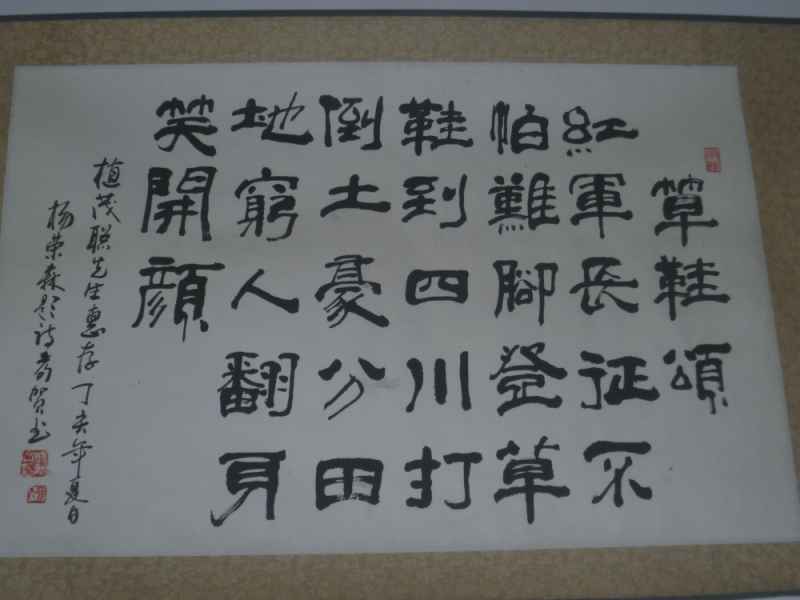 草鞋頌
紅軍長征不
怕難腳登草
鞋到四川打
倒土豪分田
地窮人翻身
笑開顔
植茂聪先生惠存丁亥年夏日
杨荣森題诗 贺书